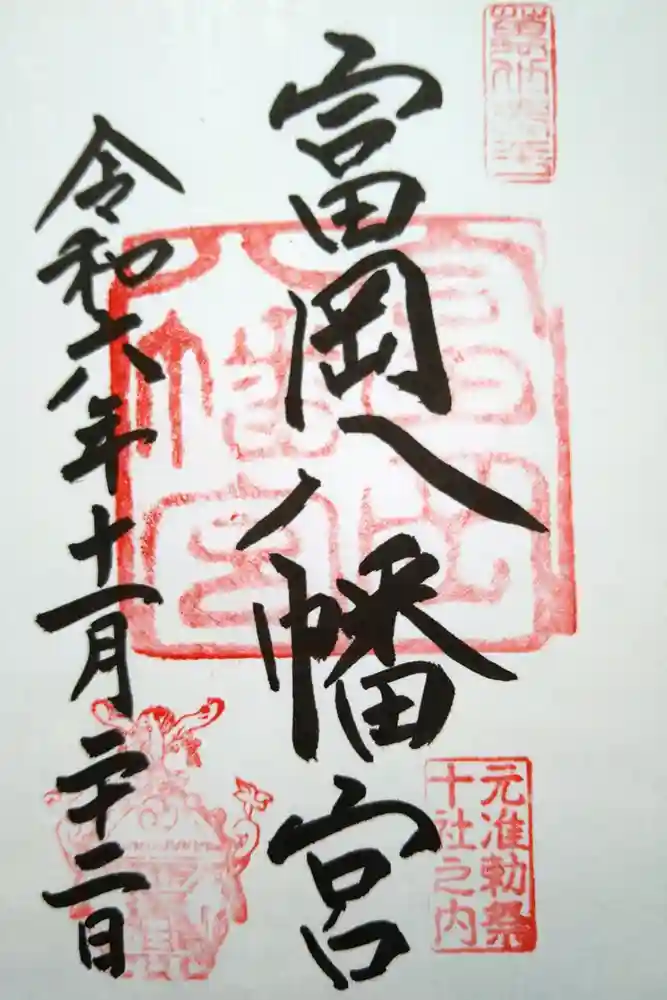 富岡八幡宮
元准勅祭
十社之内
令和六年十一月二十二日